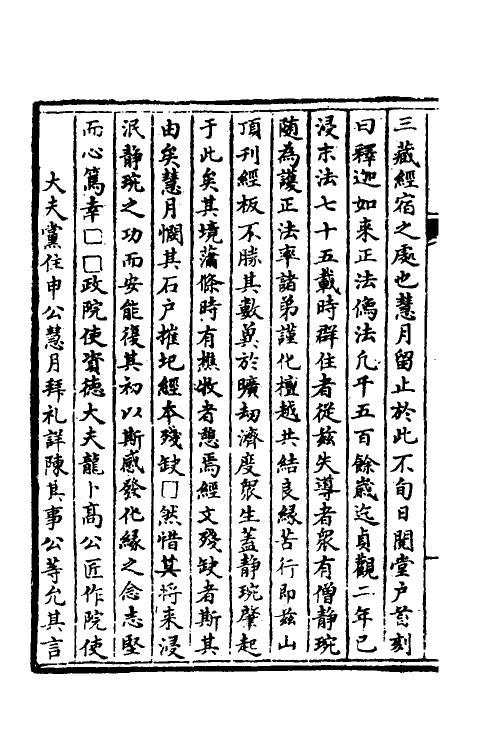 三藏經宿之處也慧月留止於此不旬日閱堂戶首刻
曰釋迦如來正法僞法凢千五百餘歲迄貞觀二年已
浸末法七十五載時群住者從兹失導者衆有僧靜琬
随為護正法率諸弟謹化檀越共結良緣苦行即兹山
頂刊經板不勝其數冀於曠刼濟度衆生蓋靜琬肇起
于此矣其境蕭條時有樵牧者憩焉經文殘缺者斯其
由矣慧月憫其石户摧圮經本殘缺□然惜其将来浸
泯靜琬之功而安能復其初以斯感發化緣之念志堅
而心篤幸□□政院使資德大夫龍卜高公匠作院使
大夫黨住申公慧月拜礼詳陳其事公等允其言